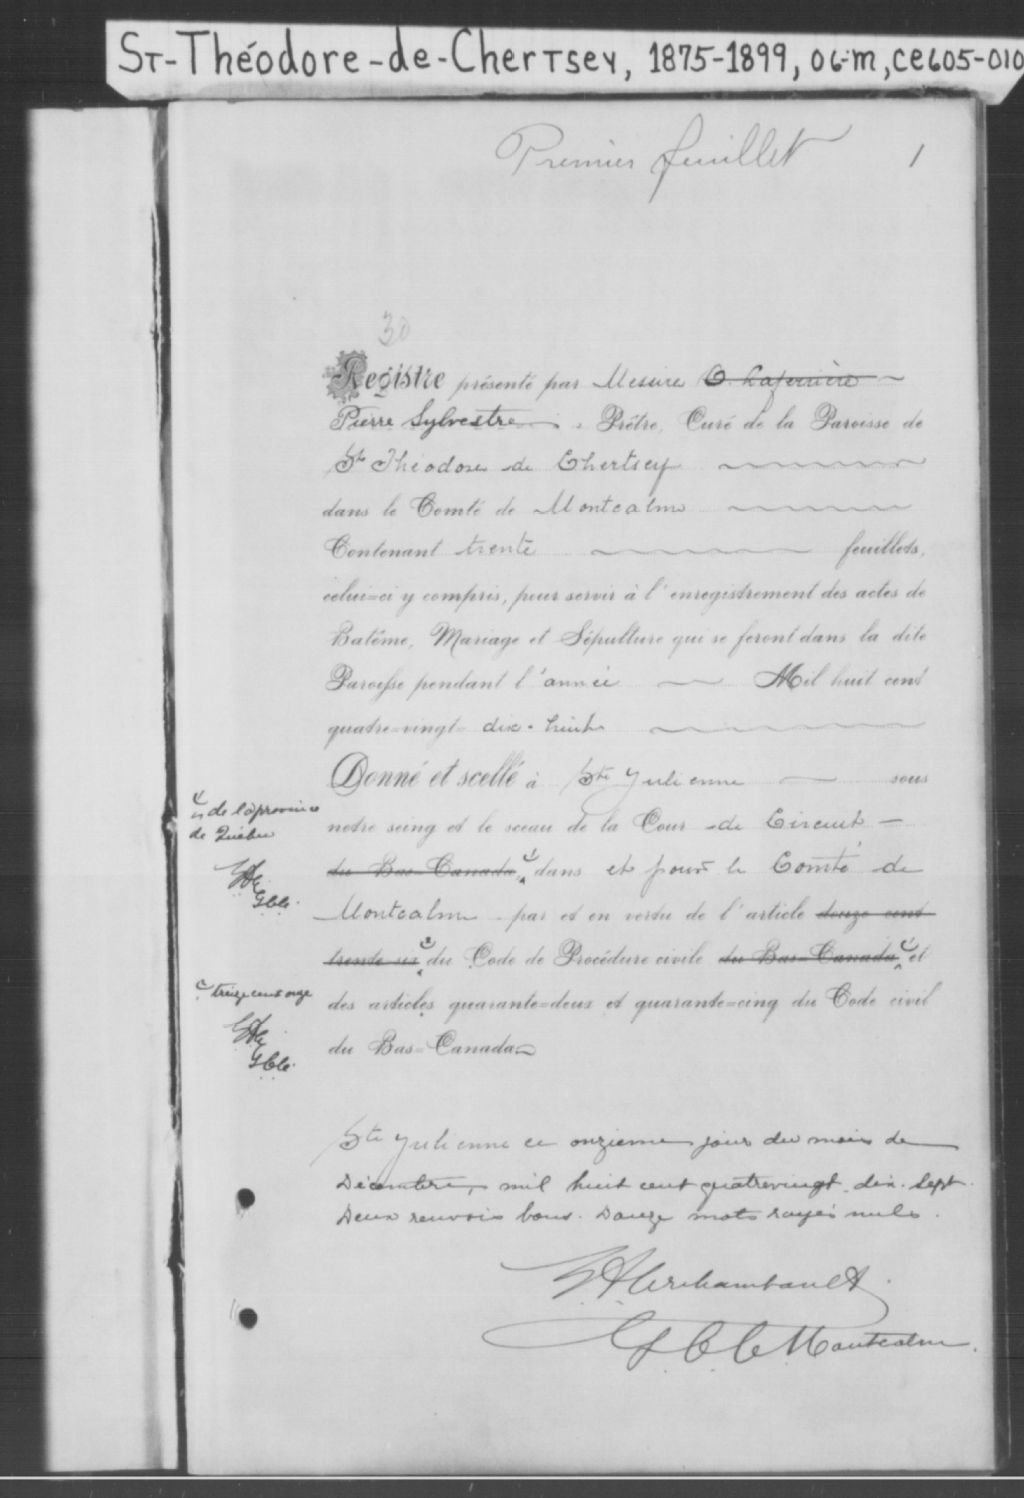 ST-Théodore-de-Chertsey, 1875-1899, 06-m, CE605-010
Premier feuillet 1
30
Registre présenté par Messire O. Laferrière
Pierre Sylvestre, Prêtre, Curé de la Paroisse de
St Théodore de Chertsey
dans le Comté de Montcalm
Contenant trente feuillets,
celui=ci y compris, pour servir à l'enregistrement des actes de
Batême, Mariage et Sépulture qui se feront dans la dite
Paroisse pendant l'année Mil huit cent
quatre=vingt= dix-huit
Donné et scellé à Ste Julienne sous
notre seing et le sceau de la Cour de Circuit
du Bas=Canada dans et pour le Comté de
de la province
de Québec
Montcalm par et en vertu de l'article douze cent
trente six du Code de Procédure civile du Bas=Canada et
treize cent onze
des articles quarante=deux et quarante=cinq du Code civil
du Bas=Canada
Ste Julienne ce onzieme jour du mois de
Décembre, mil huit cent quatrevingt dix-sept.
Deux renvois bons. Douze mots rayés nuls.
Archambault
G C C Montcalm.